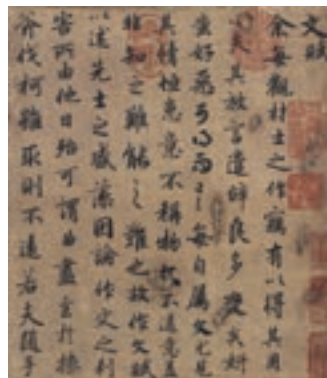 文賦
余每觀材士之作竊有以得其用
心夫其放言遣辭良多變矣妍
蚩好惡可得而言每自屬文尤見
其情恒患意不稱物文不逮意蓋
非知之難能之難也故作文賦
以述先士之盛藻因論作文之利
害所由他日殆可謂曲盡至於操
斧伐柯雖取則不遠若夫隨手